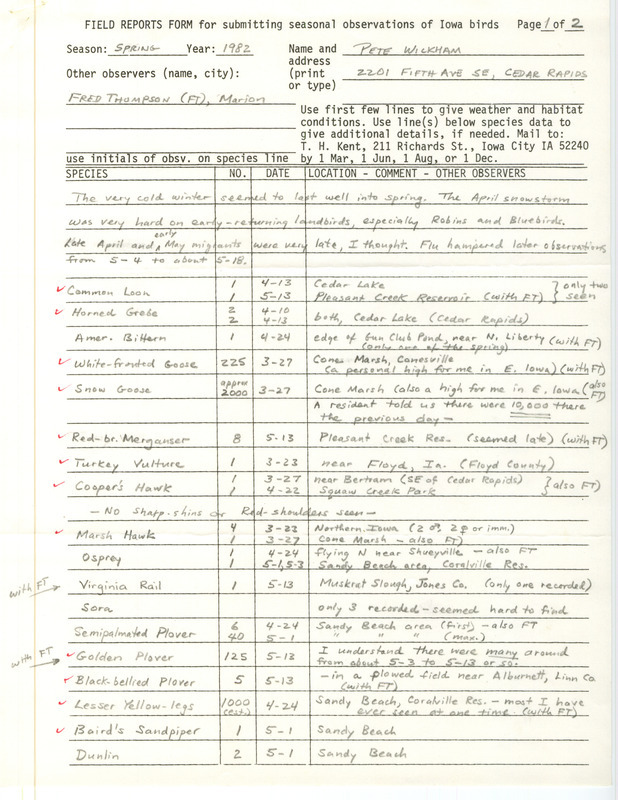 FIELD REPORTS FORM for submitting seasonal observations of Iowa birds Page 1 of 2
Season: SPRING Year: 1982 Name and PETE WICKHAM
address
Other observers (name, city): (print 2201 FIFTH AVE SE, CEDAR RAPIDS
or type)
FRED THOMPSON (FT), Marion
Use first few lines to give weather and habitat
conditions. Use line(s) below species data to
give additional details, if needed. Mail to:
T. H. Kent, 211 Richards St., Iowa City IA 52240
use initials of obsv. on species line by 1 Mar, 1 Jun, 1 Aug, or 1 Dec.
SPECIES NO. DATE LOCATION - COMMENT - OTHER OBSERVERS
The very cold winter seemed to last well into spring. The April snowstorm
was very hard on early-returning landbirds, especially Robins and Bluebirds.
Late April and early May migrants were very late, I thought. Flu hampered later observations
from 5-4 to about 5-18.
✓ Common Loon 1 4-13 Cedar Lake } only two
1 5-13 Pleasant Creek Reservoir (with FT) seen
✓ Horned Grebe 2 4-10
2 4-13 both, Cedar Lake (Cedar Rapids)
Amer. Bittern 1 4-24 edge of Gun Club Pond, near N. Liberty (with FT)
(only one of the spring)
✓ White-fronted Goose 225 3-27 Cone Marsh, Conesville
(a personal high for me in E. Iowa) (with FT)
✓ Snow Goose approx 2000 3-27 Cone Marsh (also a high for me in E. Iowa (also FT)
A resident told us there were 10,000 there
the previous day —
✓ Red-br. Merganser 8 5-13 Pleasant Creek Res. (seemed late) (with FT)
✓ Turkey Vulture 1 3-23 near Floyd, Ia. (Floyd County)
✓ Cooper's Hawk 1 3-27 near Bertram (SE of Cedar Rapids) } also FT)
1 4-22 Squaw Creek Park
— No Sharp-shins or Red-shoulders seen —
✓ Marsh Hawk 4 3-23 Northern Iowa (2 ♂, 2 ♀ or imm.)
1 3-27 Cone Marsh - also FT)
Osprey 1 4-24 flying N near Shueyville - also FT
1 5-1, 5-3 Sandy Beach area, Coralville Res.
with FT → Virginia Rail 1 5-13 Muskrat Slough, Jones Co. (only one recorded)
Sora only 3 recorded - seemed hard to find
Semipalmated Plover 6 4-24 Sandy Beach area (first) - also FT
40 5-1 " " " (max.)
with FT → ✓ Golden Plover 125 5-13 I understand there were many around
from about 5-3 to 5-13 or so.
✓ Black-bellied Plover 5 5-13 - in a plowed field near Alburnett, Linn Co
(with FT)
✓ Lesser Yellow-legs 1000 (est.) 4-24 Sandy Beach, Coralville Res. - most I have
ever seen at one time. (with FT)
✓ Baird's Sandpiper 1 5-1 Sandy Beach
Dunlin 2 5-1 Sandy Beach